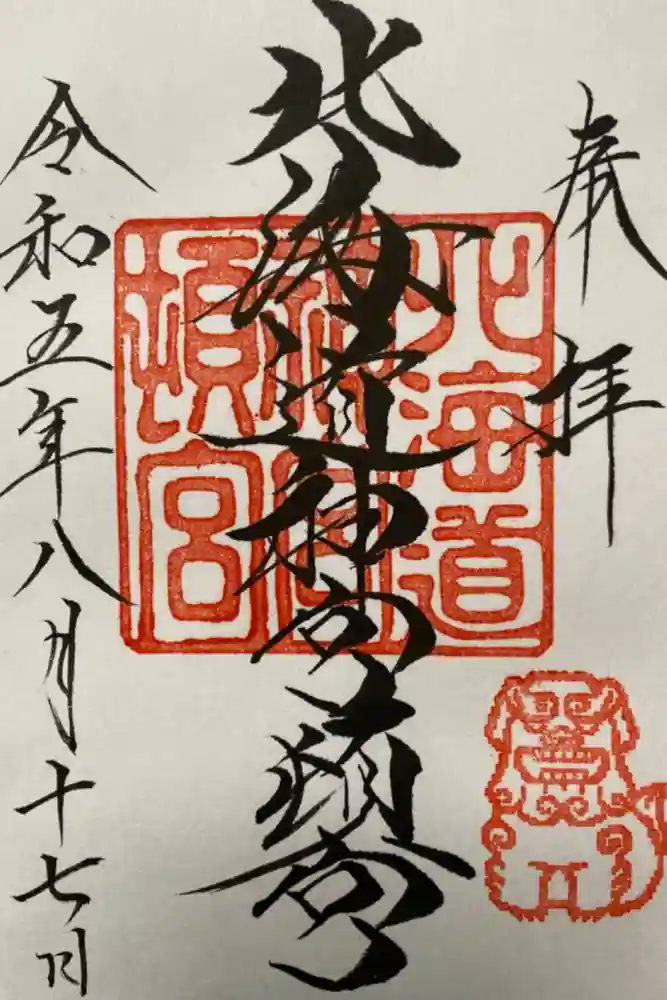 奉拝
北海道神宮頓宮
北海道
神宮
頓宮
令和五年八月十七日